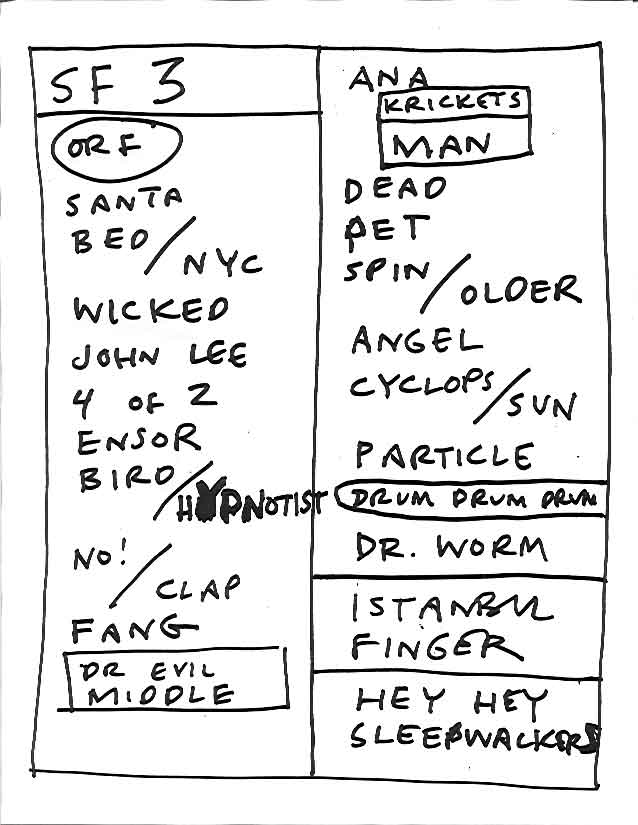 SF 3
ORF
SANTA
BED / NYC
WICKED
JOHN LEE
4 OF 2
ENSOR
BIRD / HYPNOTIST
NO! / CLAP
FANG
DR EVIL
MIDDLE
ANA
KRICKETS
MAN
DEAD
PET
SPIN / OLDER
ANGEL
CYCLOPS / SUN
PARTICLE
DRUM DRUM DRUM
DR. WORM
ISTANBUL
FINGER
HEY HEY
SLEEPWALKERS